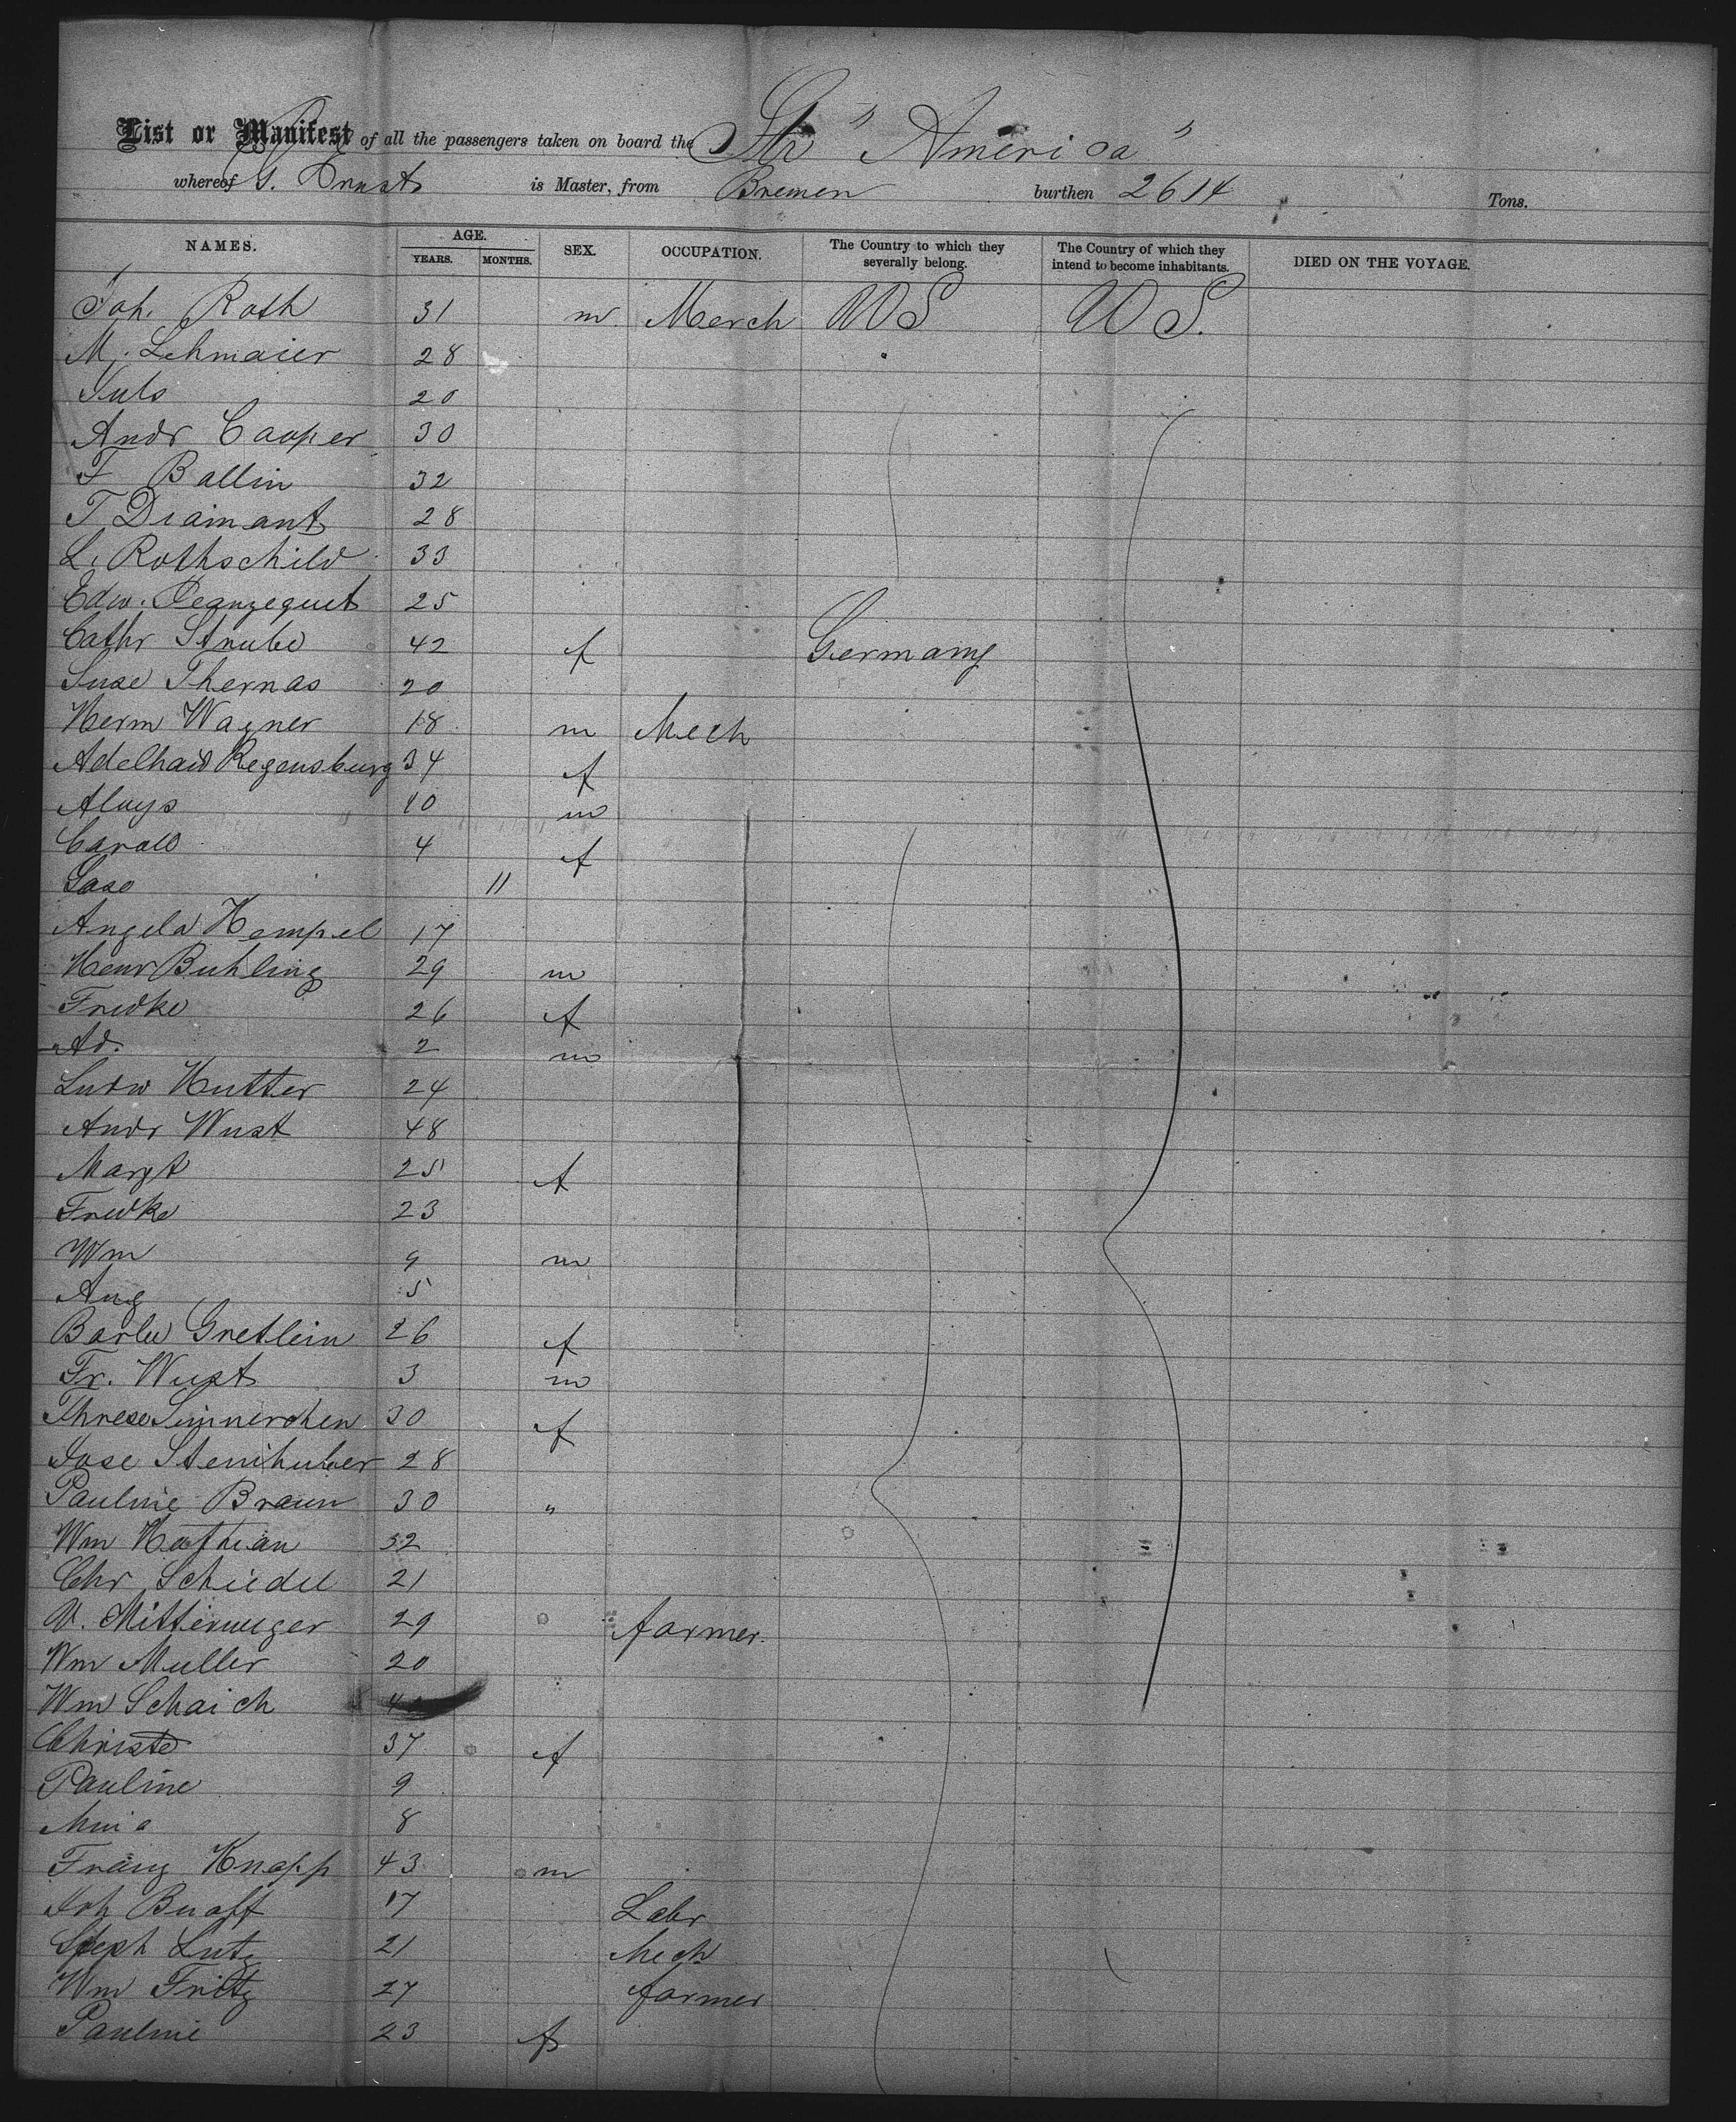 List or Manifest of all the passengers taken on board the Str "America"
whereof G. Ernst is Master, from Bremen burthen 2614 Tons.
NAMES. AGE. YEARS. MONTHS. SEX. OCCUPATION. The Country to which they severally belong. The Country of which they intend to become inhabitants. DIED ON THE VOYAGE.
Joh. Roth 31 m Merch US US.
M. Lehmaier 28
Juls 20
Andr Cooper 30
F Ballin 32
T Diamant 28
L. Rothschild 33
Edw. 25
Cathr Strube 42 f Germany
Suse Thernas 20
Herm Wagner 18 m Mech
Adelhaid Regensburg 34 f
Aloys 10 m
4 f
11
Angela Hempel 17
Henr Buhling 29 m
Fredke 26 f
Ad. 2 m
Ludw Hutter 24
Andr Wust 48
Margt 25 f
Fredke 23
Wm 9 m
Aug 5
Gretlein 26 f
Fr. Wust 3 m
Threse 30 f
Jose Steinhuber 28
Pauline Braun 30 "
Wm 32
Chr Schiedel 21
V. Mitterweger 29 farmer
Wm Muller 20
Wm Schaich
Christe 37 f
Pauline 9
Mina 8
Franz Knapp 43 m
Joh 17 Labr
Steph Lutz 21 Mech
Wm Fritz 27 farmer
Pauline 23 f